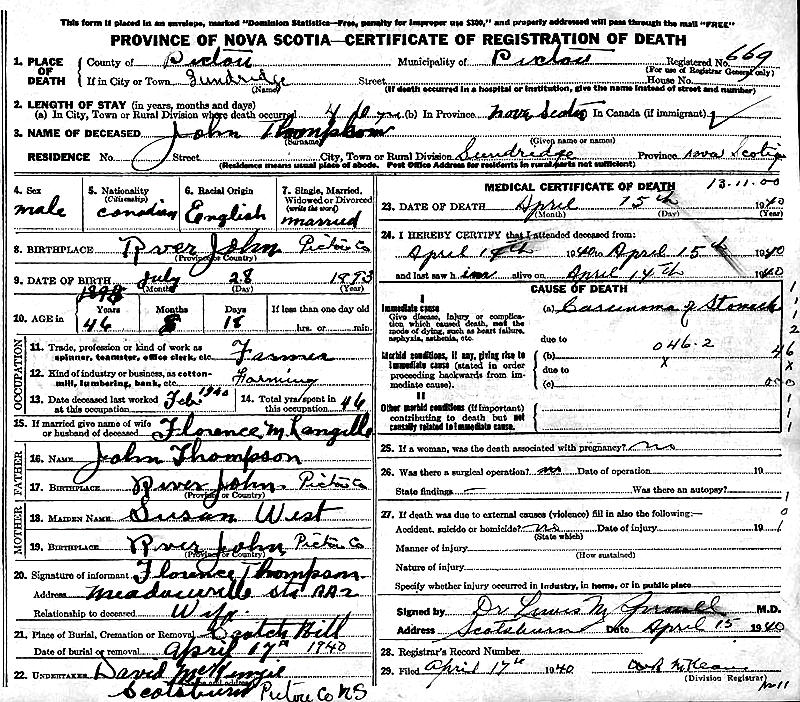 This form if placed in an envelope, marked "Dominion Statistics—Free, penalty for improper use $300," and properly addressed will pass through the mail "FREE"
PROVINCE OF NOVA SCOTIA—CERTIFICATE OF REGISTRATION OF DEATH
1. PLACE OF DEATH County of Pictou Municipality of Pictou Registered No. 669
(For use of Registrar General only)
If in City or Town Sundridge Street House No.
(Name) (If death occurred in a hospital or institution, give the name instead of street and number)
2. LENGTH OF STAY (in years, months and days)
(a) In City, Town or Rural Division where death occurred (b) In Province Nova Scotia In Canada (if immigrant)
3. NAME OF DECEASED John Thompson
(Surname) (Given name or names)
RESIDENCE No. Street City, Town or Rural Division Sundridge Province Nova Scotia
(Residence means usual place of abode. Post Office Address for residents in rural parts not sufficient)
4. Sex male
5. Nationality (Citizenship) Canadian
6. Racial Origin English
7. Single, Married, Widowed or Divorced (write the word) married
8. BIRTHPLACE River John Pictou Co
(Province or Country)
9. DATE OF BIRTH July 28 1893
(Month) (Day) (Year)
10. AGE in Years 46 Months 8 Days 18 If less than one day old hrs. or min.
OCCUPATION
11. Trade, profession or kind of work as spinner, teamster, office clerk, etc. Farmer
12. Kind of industry or business, as cotton-mill, lumbering, bank, etc. Farming
13. Date deceased last worked at this occupation Feb 1940
14. Total yrs. spent in this occupation 46
15. If married give name of wife or husband of deceased Florence M. Langille
FATHER
16. NAME John Thompson
17. BIRTHPLACE River John Pictou Co
(Province or Country)
MOTHER
18. MAIDEN NAME Susan West
19. BIRTHPLACE River John Pictou Co
(Province or Country)
20. Signature of informant Florence Thompson
Address Meadowville Sta RR2
Relationship to deceased Wife
21. Place of Burial, Cremation or Removal Scotch Hill
Date of burial or removal April 17th 1940
22. UNDERTAKER David McKenzie
Scotsburn Pictou Co NS
MEDICAL CERTIFICATE OF DEATH 13-11-00
23. DATE OF DEATH April 15th 1940
(Month) (Day) (Year)
24. I HEREBY CERTIFY that I attended deceased from:
April 14th 1940 to April 15th 1940
and last saw him alive on April 14th 1940
CAUSE OF DEATH
I
Immediate cause
Give disease, injury or complication which caused death, not the mode of dying, such as heart failure, asphyxia, asthenia, etc.
(a) Carcinoma of Stomach
due to
046.2
Morbid conditions, if any, giving rise to immediate cause (stated in order proceeding backwards from immediate cause).
(b) X
due to
(c)
II
Other morbid conditions (if important) contributing to death but not causally related to immediate cause.
25. If a woman, was the death associated with pregnancy? no
26. Was there a surgical operation? no Date of operation 19
State findings — Was there an autopsy?
27. If death was due to external causes (violence) fill in also the following:—
Accident, suicide or homicide? no Date of injury 19
(State which)
Manner of injury
(How sustained)
Nature of injury
Specify whether injury occurred in industry, in home, or in public place
Signed by Dr Lewis M M.D.
Address Scotsburn Date April 15 1940
28. Registrar's Record Number
29. Filed April 17th 1940
(Division Registrar)